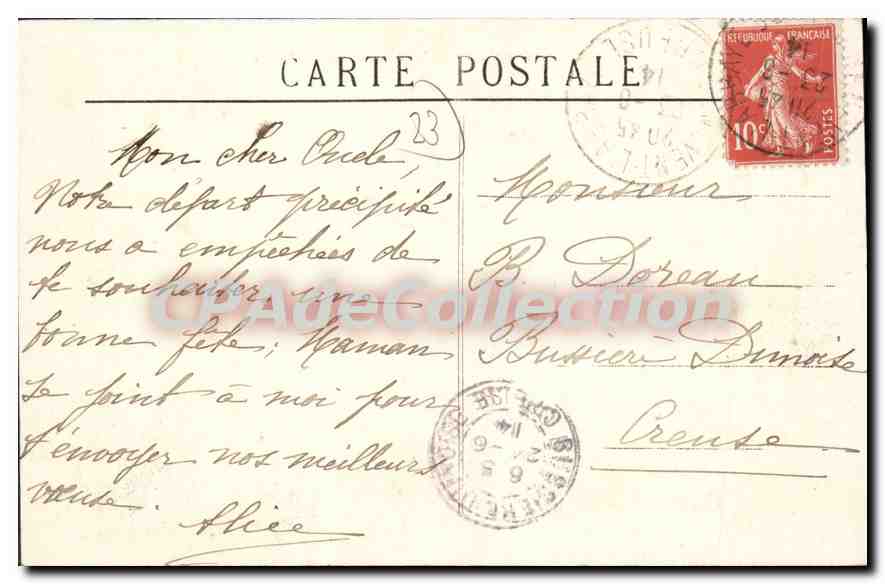 CARTE POSTALE
23
RÉPUBLIQUE FRANÇAISE
10c
POSTES
Mon cher Oncle,
Notre départ précipité
nous a empêchées de
te souhaiter, une
bonne fête; Maman
se joint à moi pour
t'envoyer nos meilleurs
vœux.
Alice
Monsieur
B. Doreau
Bussière Dunoise
Creuse
CPAdeCollection
BUSSIERE DUNOISE CREUSE